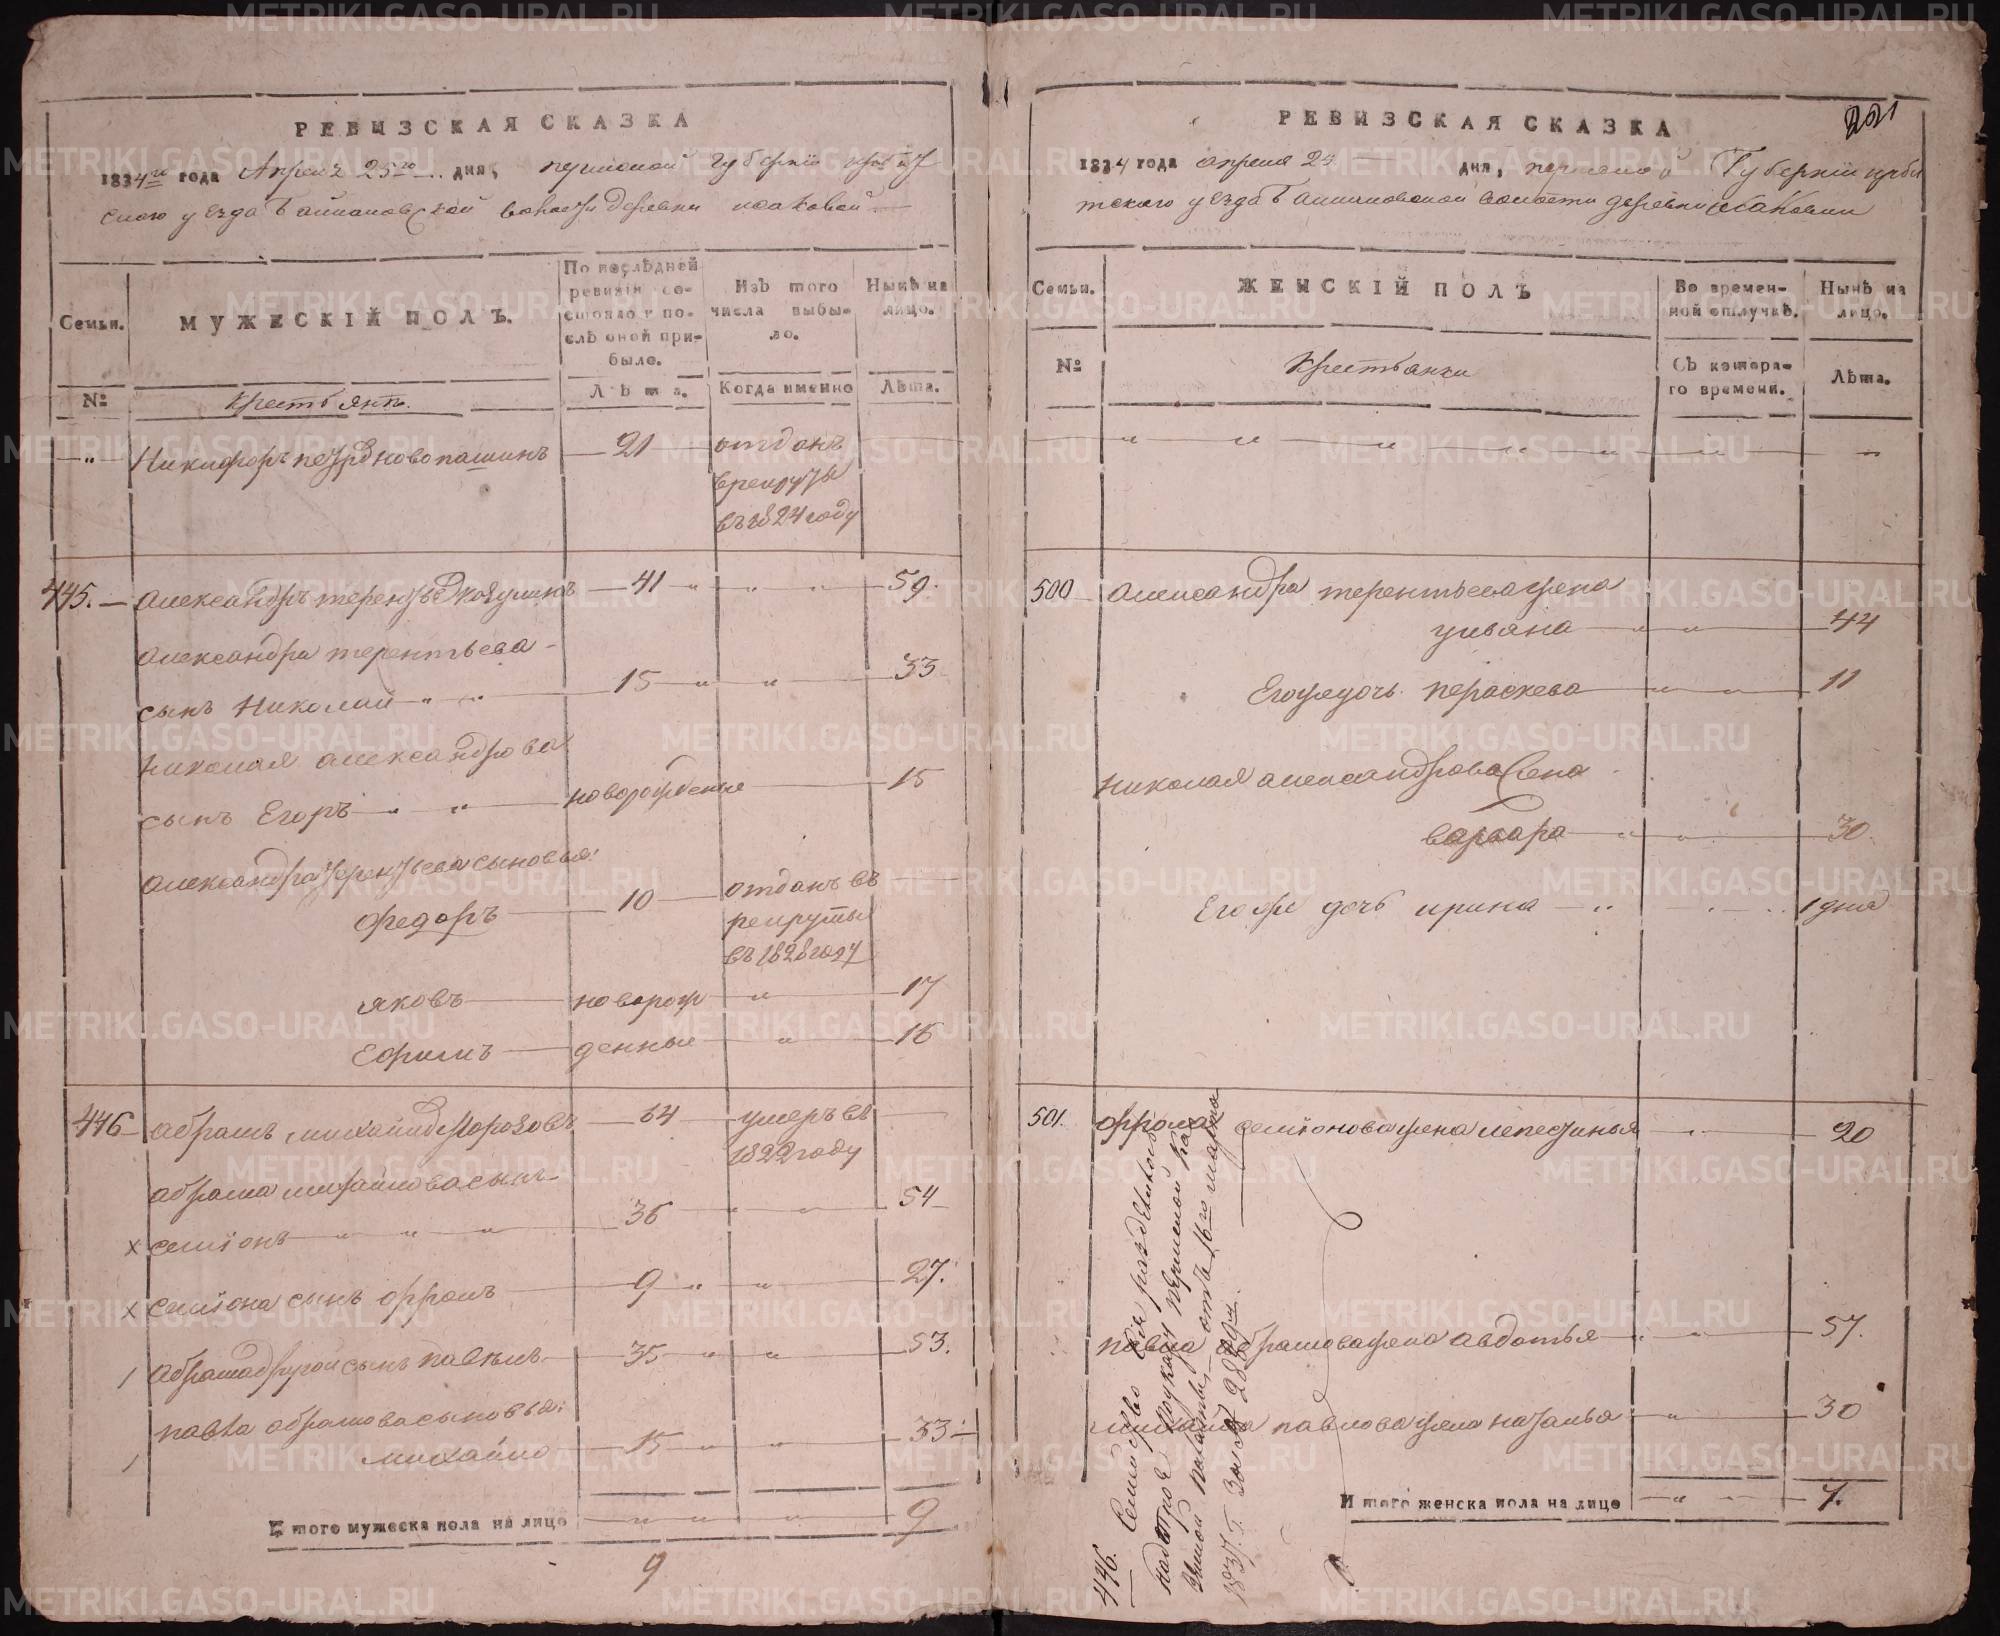 РЕВИЗСКАЯ СКАЗКА
1834го года Апреля 25го дня, пермской губернiи ирбит
скаго уезда байкаловской волости деревни исаковой
Семьи.
МУЖЕСКIЙ ПОЛЪ.
По послѣдней ревизiи состояло и послѣ оной прибыло.
Изъ того числа выбыло.
Нынѣ на лицо.
№
Крестьянъ.
Лѣта.
Когда именно
Лѣта.
Никифоръ петровъ новопашинъ 21 отданъ
в рекруты
въ 1824 году
445. Александръ терентьевъ 41 59.
Александра терентьева
сынъ Николай 15 33
Николая александрова
сынъ Егоръ новорожденые 15
Александра терентьева сыновья:
Федоръ 10 отданъ въ
рекруты
въ 1828 году
яковъ новорож 17
Ефимъ денные 16
446 абрамъ михайловъ Морозовъ 64 умеръ въ
1822 году
абрама михайлова сынъ
х семiонъ 36 54
х семiона сынъ ефромъ 9 27.
Абрама другой сынъ павелъ 35 53.
павла абрамова сыновья:
михайло 15 33
Итого мужеска пола на лицо 9
9
221
РЕВИЗСКАЯ СКАЗКА
1834 года апреля 25 дня, пермской Губернiи ирби
тского уезда байкаловской волости деревни исаковой
Семьи.
ЖЕНСКIЙ ПОЛЪ
Во временной отлучкѣ.
Нынѣ на лицо.
№
Крестьянки
Съ котораго времени.
Лѣта.
500 Александра терентьева жена
ульяна 44
Его же дочь пераскева 11
николая александрова жена
варвара 30.
Его же дочь ирина 1 дня
501. семiонова жена 20
павла абрамова жена авдотья 57.
михайла павлова жена наталья 30
Итого женска пола на лицо 7.
446. Семейство сiе
по указу пермской Ка
зенной палаты, отъ 16го марта
1837. г. за №